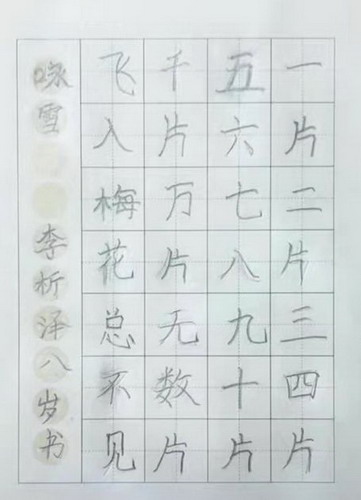 一片二片三四片
五六七八九十片
千片万片无数片
飞入梅花总不见
咏雪
李析泽八岁书